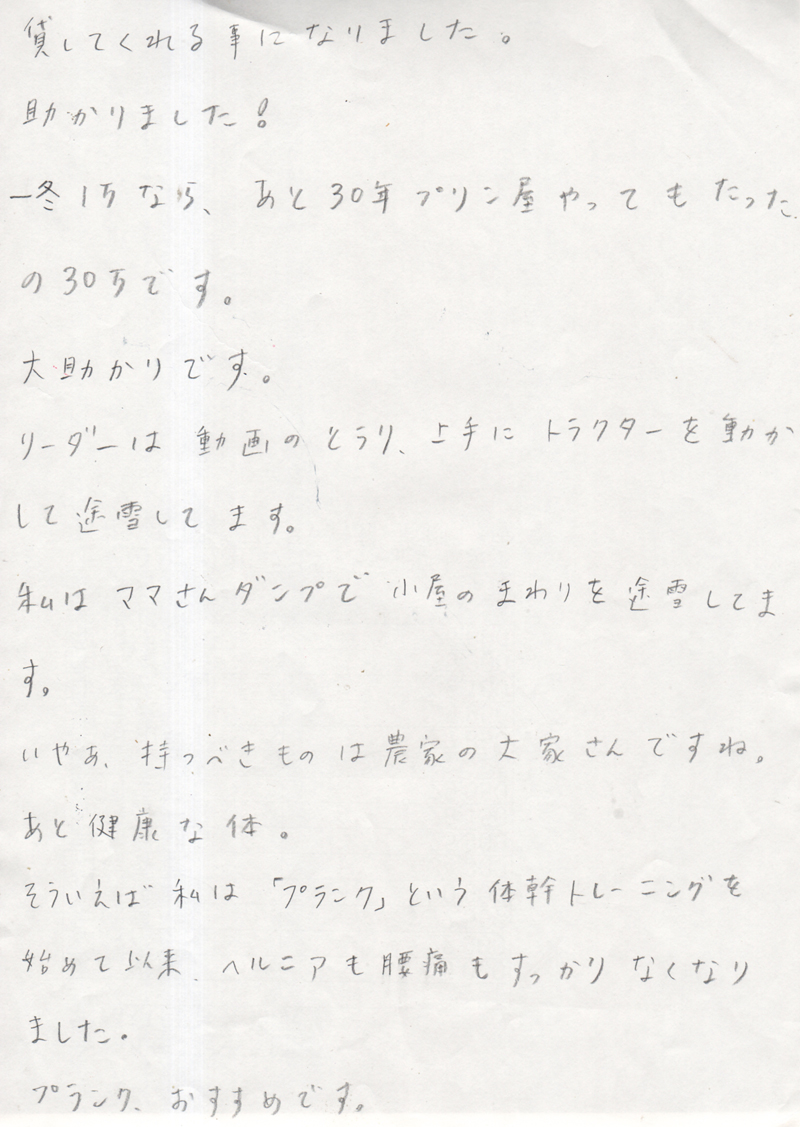 貸してくれる事になりました。
助かりました!
一冬1万なら、あと30年プリン屋やってもたった
の30万です。
大助かりです。
リーダーは動画のとうり、上手にトラクターを動か
して途雪してます。
私はママさんダンプで小屋のまわりを途雪してま
す。
いやぁ、持つべきものは農家の大家さんですね。
あと健康な体。
そういえば私は「プランク」という体幹トレーニングを
始めて以来、ヘルニアも腰痛もすっかりなくなり
ました。
プランク、おすすめです。